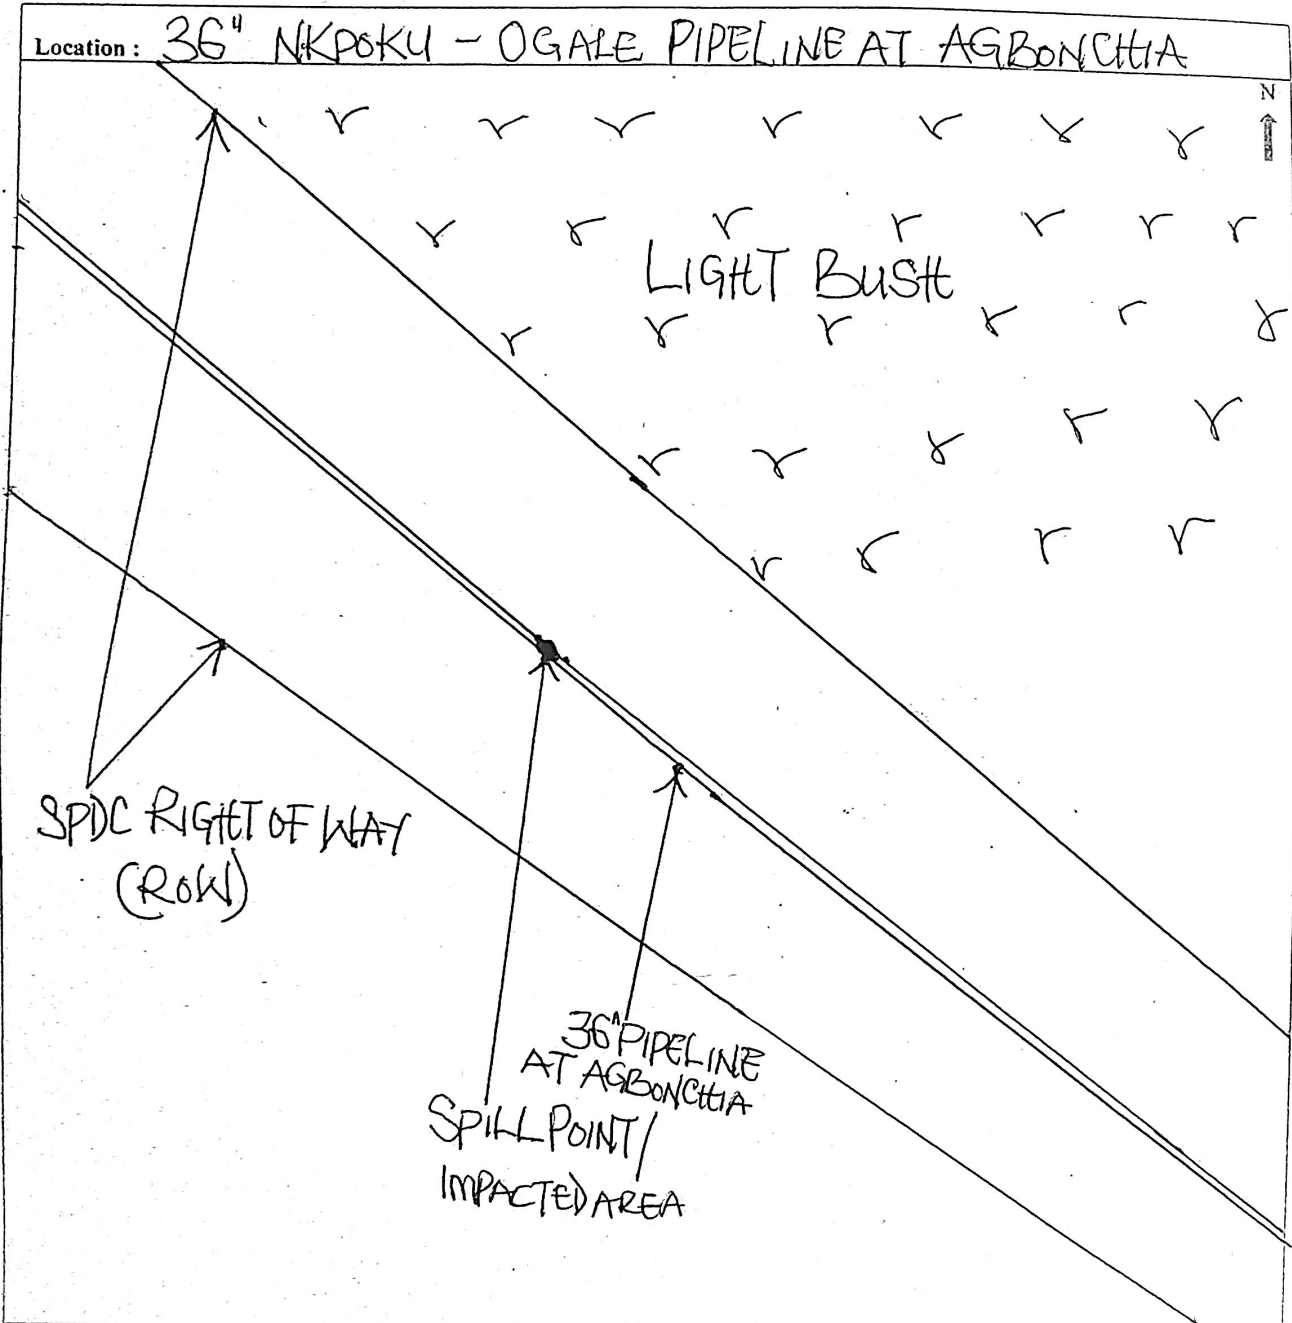 Location : 36" NKPOKU - OGALE PIPELINE AT AGBONCHIA
N
LIGHT BUSH
SPDC RIGHT OF WAY
(ROW)
36" PIPELINE
AT AGBONCHIA
SPILL POINT/
IMPACTED AREA